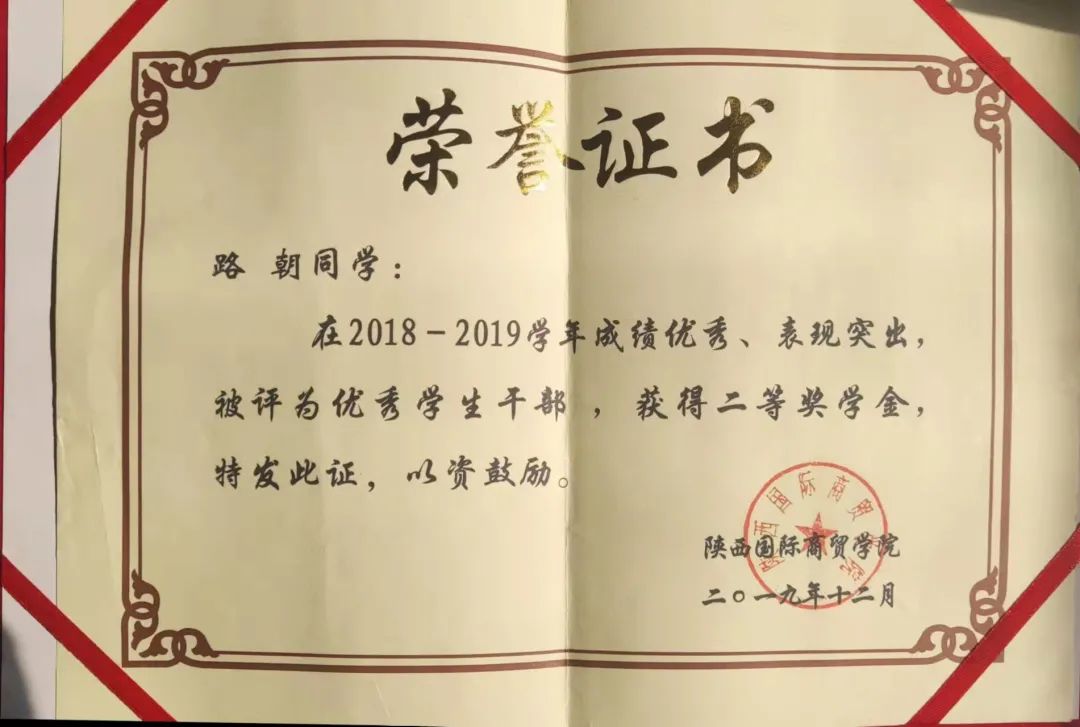 荣誉证书
路 朝同学：
在2018－2019学年成绩优秀、表现突出，
被评为优秀学生干部，获得二等奖学金，
特发此证，以资鼓励。
陕西国际商贸学院
陕西国际商贸学院
二〇一九年十二月